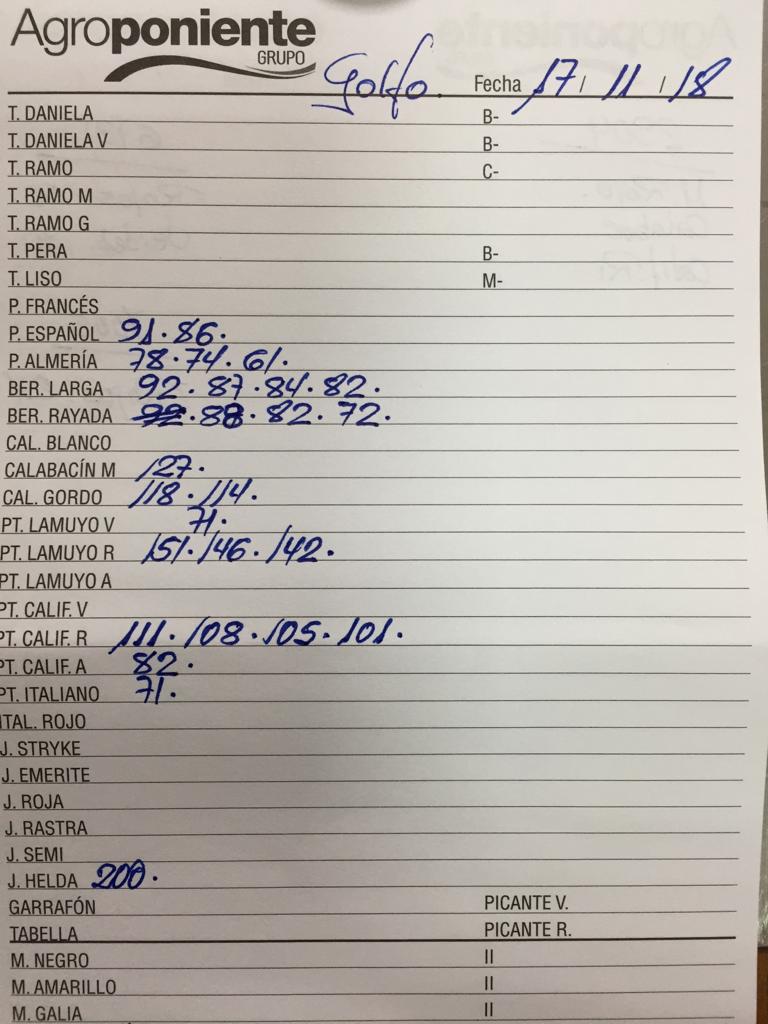 Agroponiente
GRUPO
Golfo. Fecha 17 / 11 / 18
T. DANIELA B-
T. DANIELA V B-
T. RAMO C-
T. RAMO M
T. RAMO G
T. PERA B-
T. LISO M-
P. FRANCÉS
P. ESPAÑOL 91. 86.
P. ALMERÍA 78. 74. 61.
BER. LARGA 92. 87. 84. 82.
BER. RAYADA . 88. 82. 72.
CAL. BLANCO
CALABACÍN M 127.
CAL. GORDO 118. 114.
PT. LAMUYO V 71.
PT. LAMUYO R 151. 146. 142.
PT. LAMUYO A
PT. CALIF. V
PT. CALIF. R 111. 108. 105. 101.
PT. CALIF. A 82.
PT. ITALIANO 71.
ITAL. ROJO
J. STRYKE
J. EMERITE
J. ROJA
J. RASTRA
J. SEMI
J. HELDA 200.
GARRAFÓN PICANTE V.
TABELLA PICANTE R.
M. NEGRO II
M. AMARILLO II
M. GALIA II